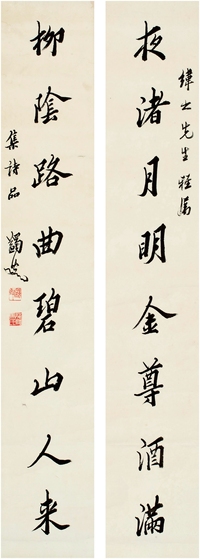 緯士先生雅属
夜渚月明金尊酒滿
柳陰路曲碧山人来
集詩品